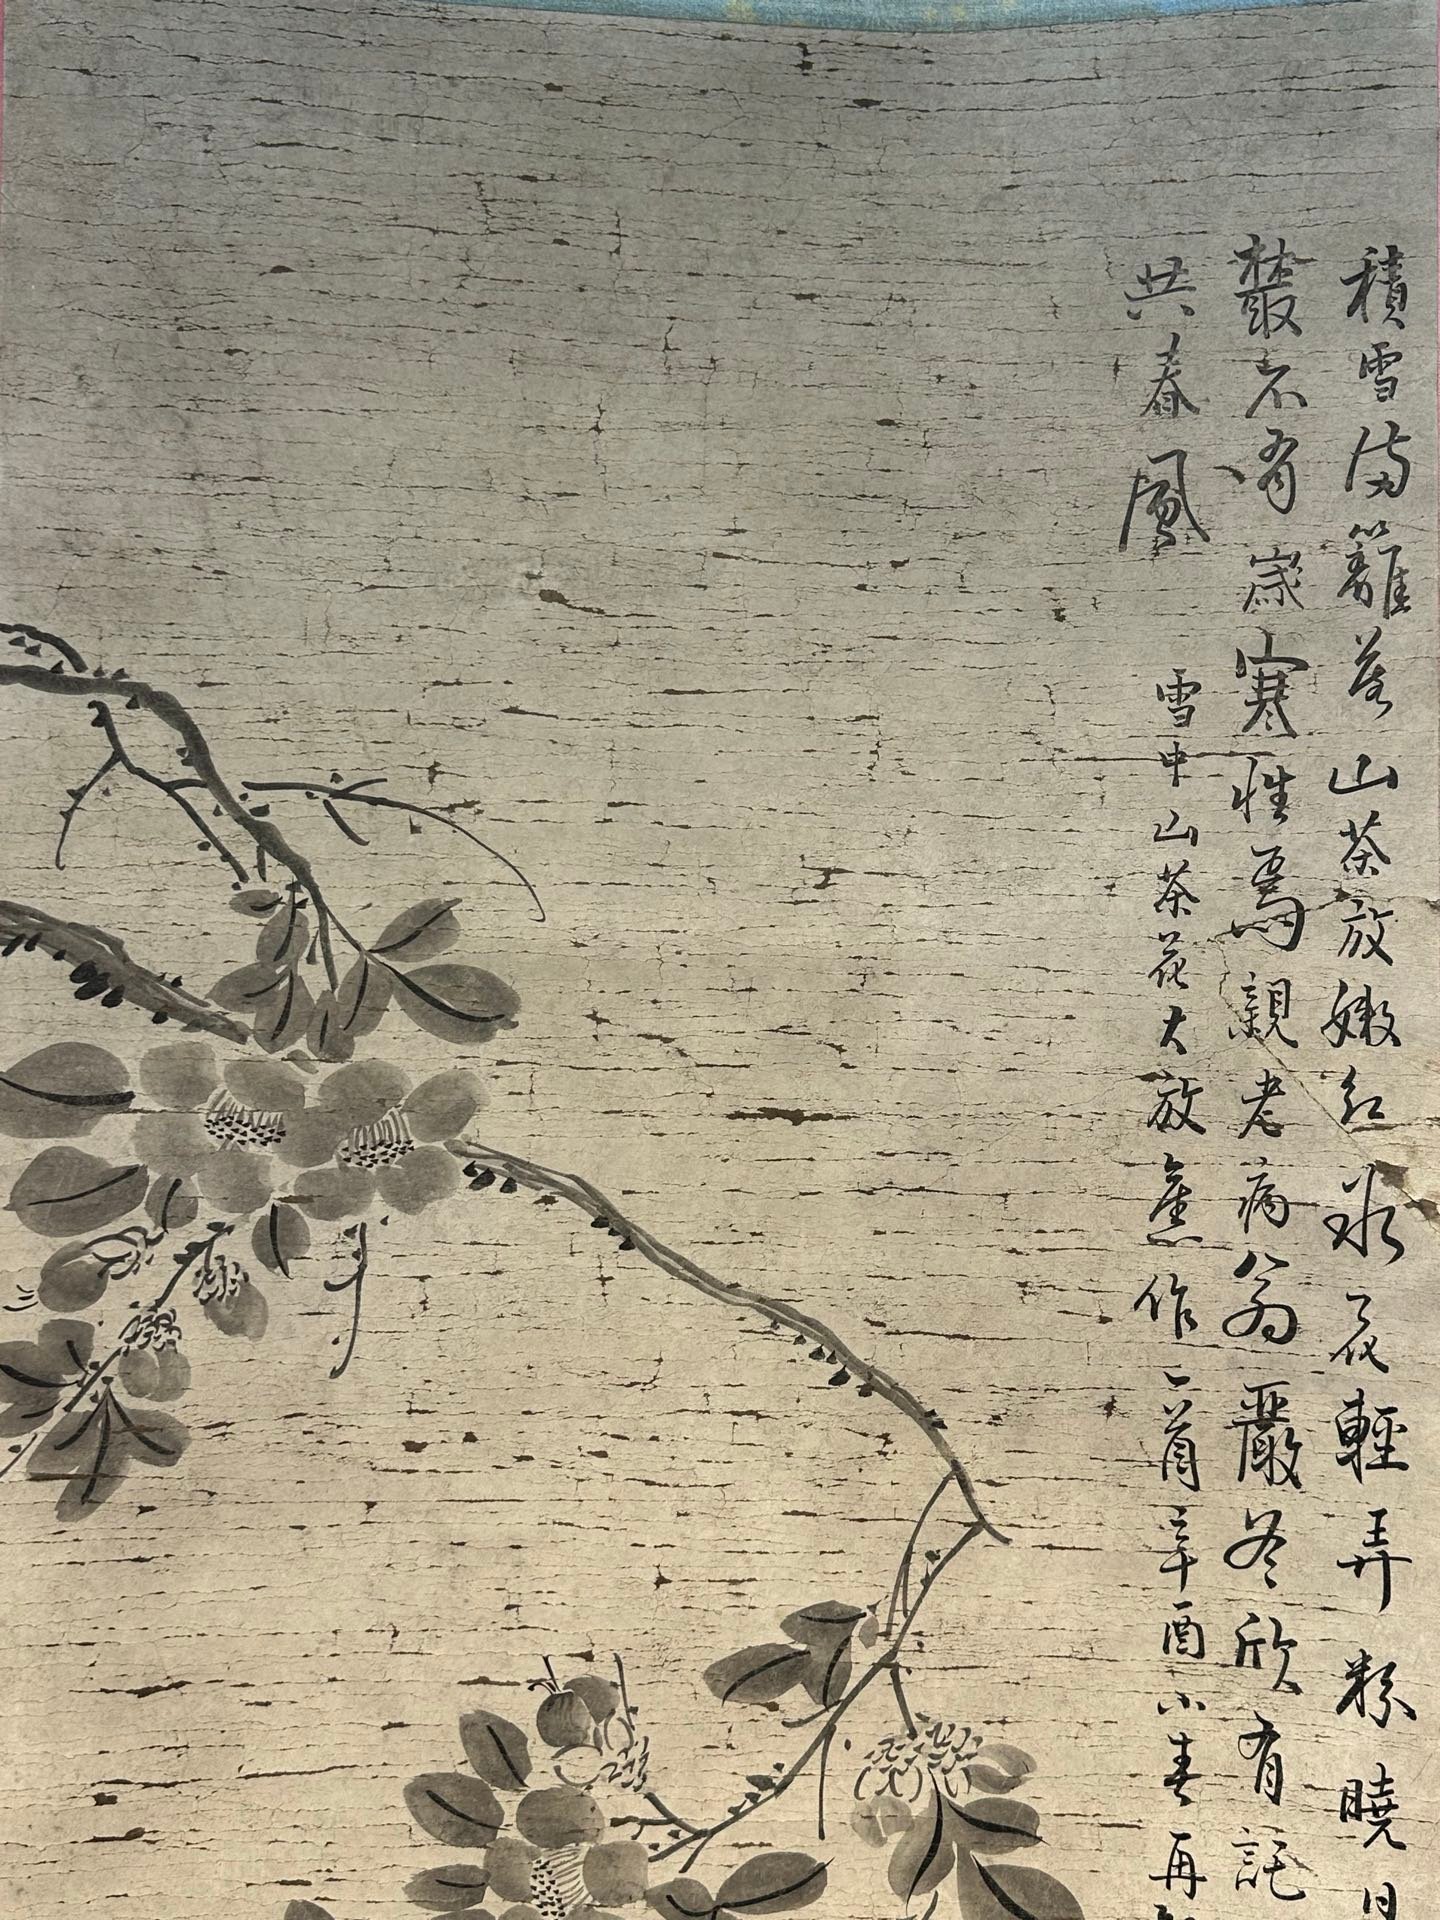 積雪滿籬落山茶放嫩紅冰花輕弄粉曉日
叢不有歲寒性焉親老病翁嚴冬欣有託
共春風
雪中山茶花大放舊作一首辛酉小春再